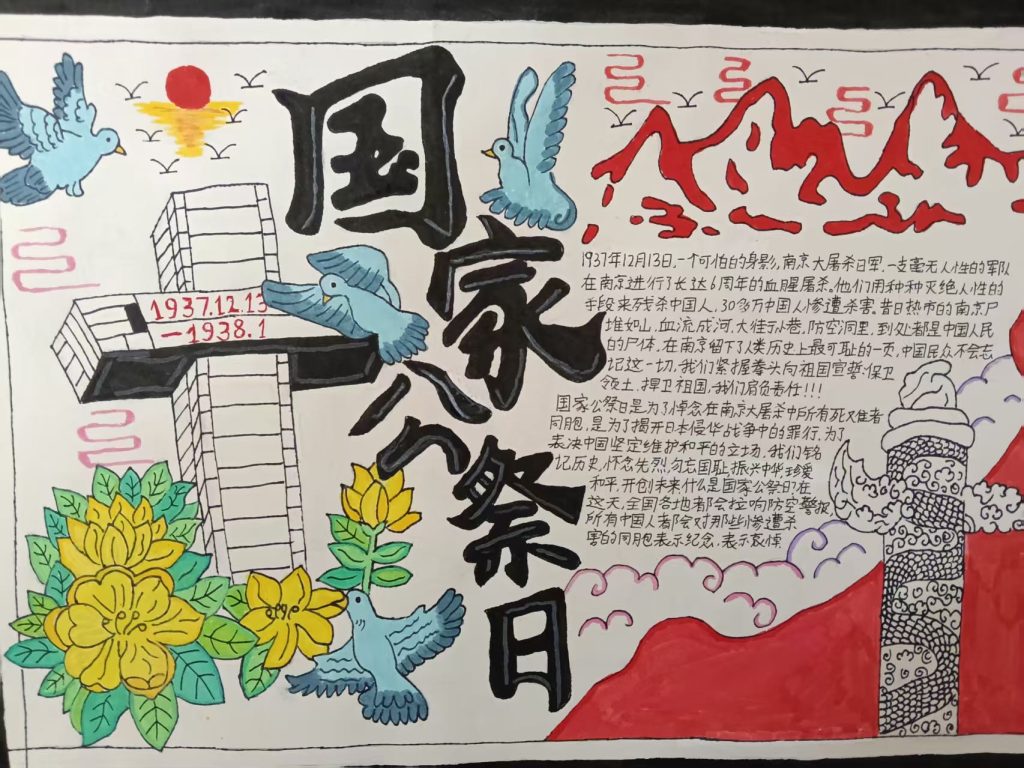 国家公祭日
1937.12.13
—1938.1
1937年12月13日,一个可怕的身影,南京大屠杀日军,一支毫无人性的军队
在南京进行了长达6周年的血腥屠杀,他们用种种灭绝人性的
手段来残杀中国人,30多万中国人惨遭杀害。昔日热市的南京尸
堆如山,血流成河,大街小巷,防空洞里,到处都是中国人民
的尸体,在南京留下了人类历史上最可耻的一页,中国民众不会忘
记这一切,我们紧握拳头向祖国宣誓:保卫
领土,捍卫祖国,我们肩负责任!!!
国家公祭日是为了悼念在南京大屠杀中所有死难者
同胞,是为了揭开日本侵华战争中的罪行,为了
表决中国坚定维护和平的立场,我们铭
记历史,怀念先烈,勿忘国耻,振兴中华,珍爱
和平,开创未来什么是国家公祭日在
这天,全国各地都会拉响防空警报,
所有中国人都会对那些惨遭杀
害的同胞表示纪念,表示哀悼